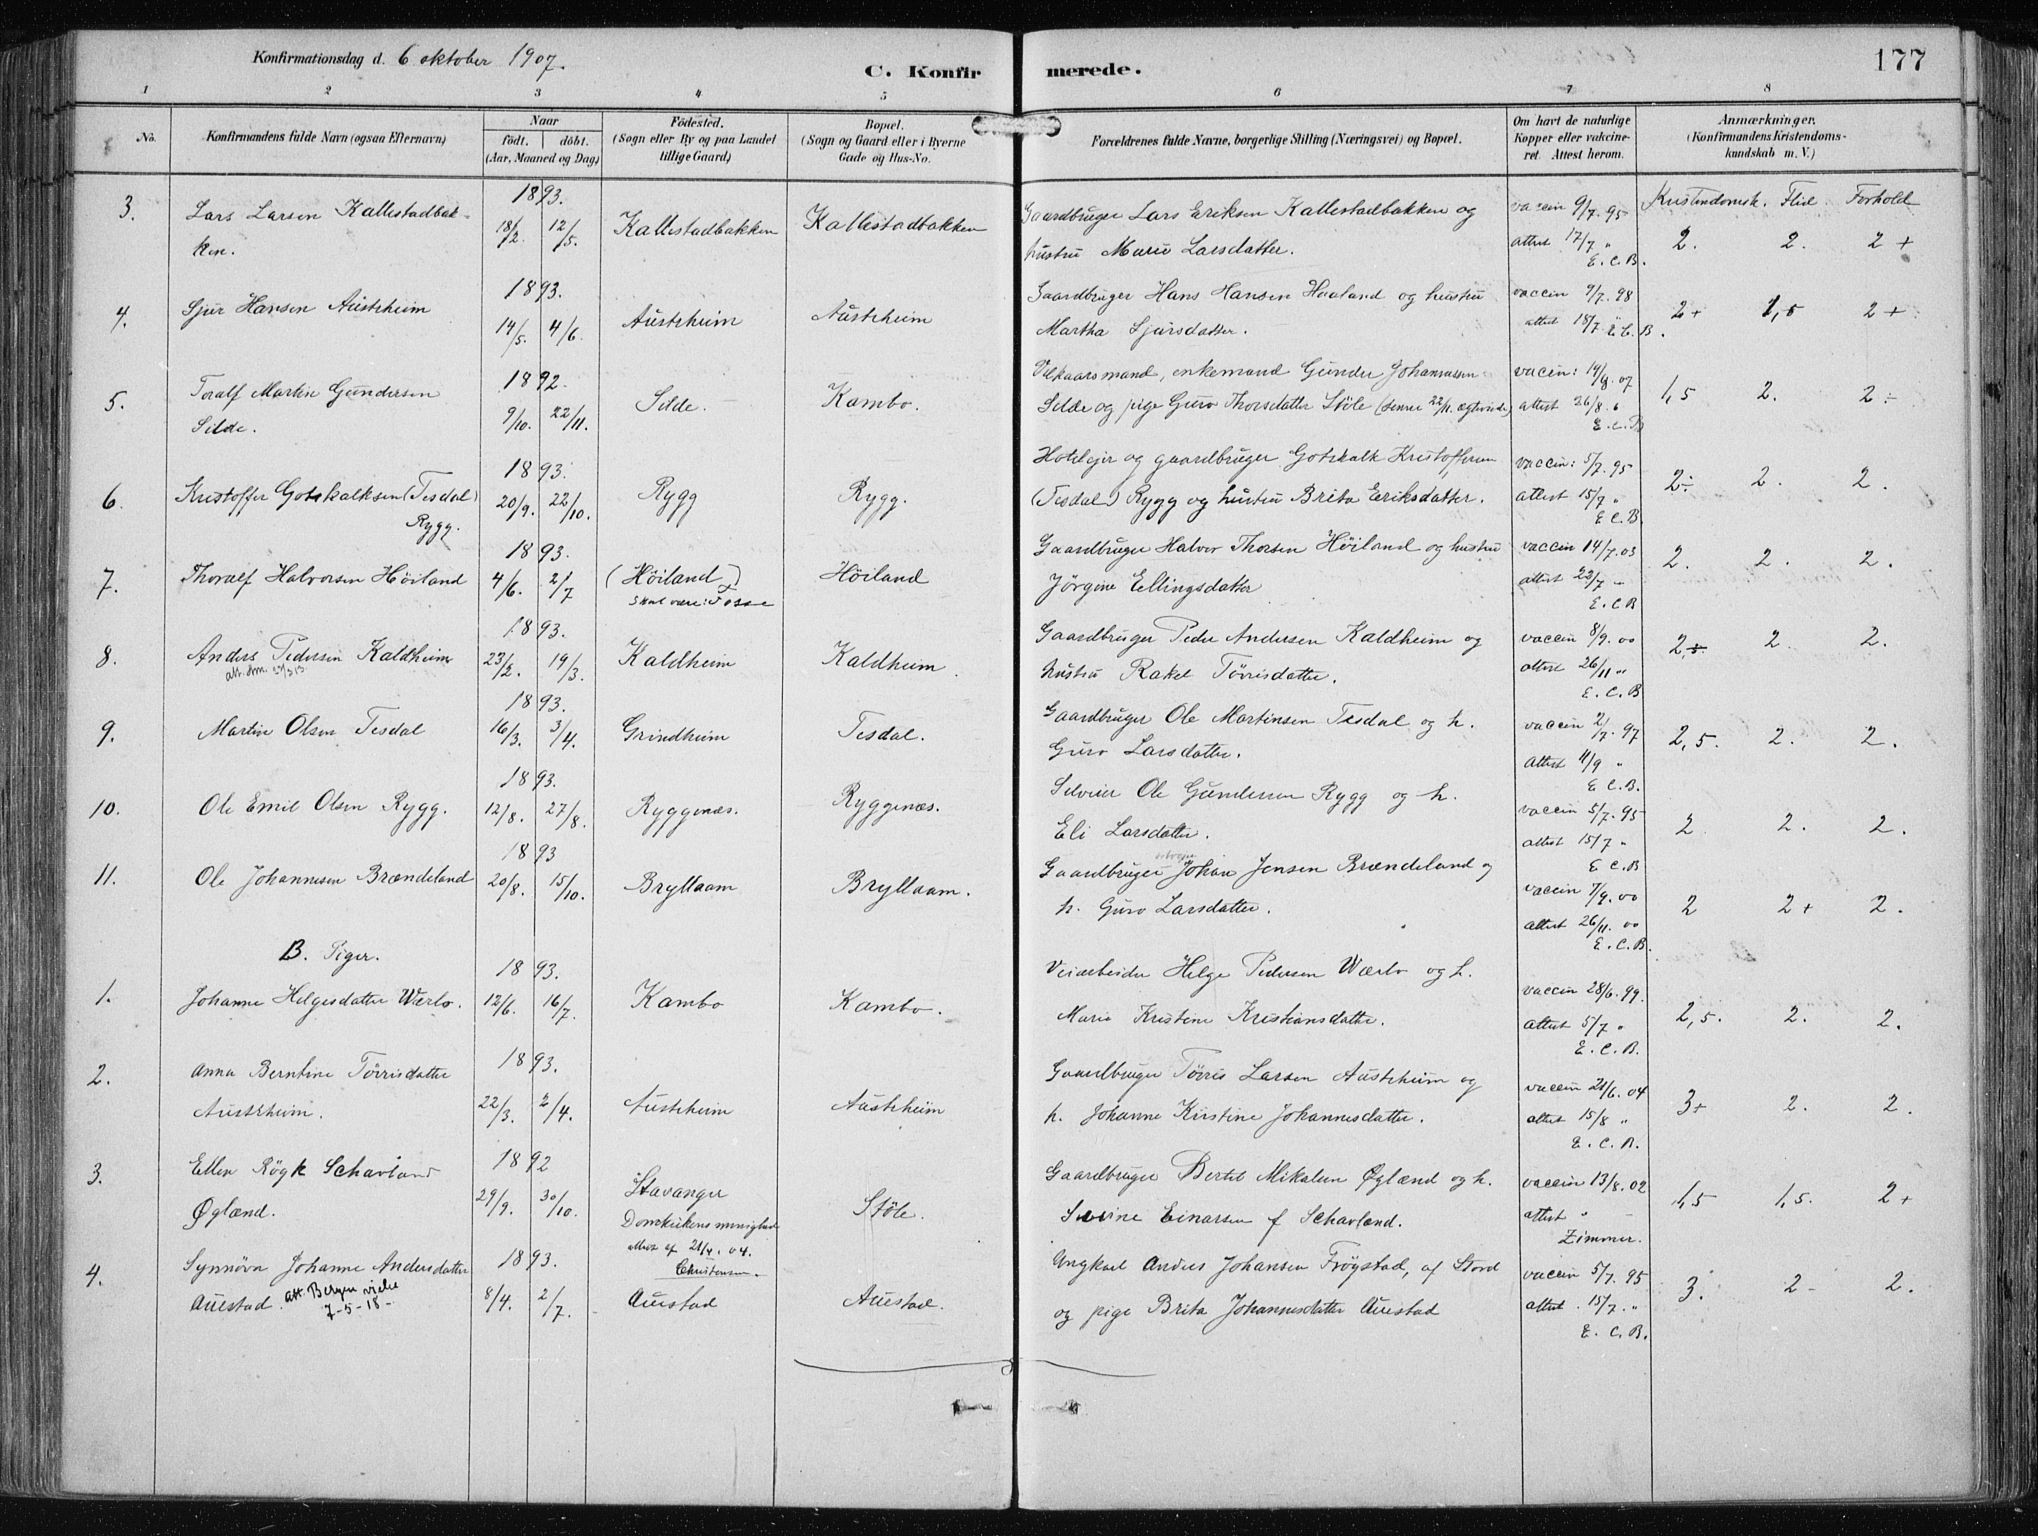 Konfirmationsdag d. 6 oktober 1907.
C. Konfirmerede.
177
1 2 3 4 5 6 7 8
No. Konfirmandens fulde Navn (ogsaa Efternavn) Naar födt. döbt. (Aar, Maaned og Dag) Födested. (Sogn eller By og paa Landet tillige Gaard) Bopæl. (Sogn og Gaard eller i Byerne Gade og Hus-No. Forældrenes fulde Navne, borgerlige Stilling (Næringsvei) og Bopæl. Om havt de naturlige Kopper eller vakcineret. Attest herom. Anmærkninger. (Konfirmandens Kristendomskundskab m. V.)
Kristendomsk. Flid Forhold
3. Lars Larsen Kallestadbakken. 1893. 18/2. 12/5. Kallestadbakken Kallestadbakken Gaardbruger Lars Eriksen Kallestadbakken og
hustru Marie Larsdatter. vaccin 9/7. 95 attest 17/7 " E. C. B. 2. 2. 2 +
4. Sjur Hansen Austrheim 1893. 14/5. 4/6. Austrheim Austrheim Gaardbruger Hans Hansen Haaland og hustru
Martha Sjursdatter. vaccin 9/7. 98 attest 18/7 " E. C. B. 2+ 1,5 2 +
5. Toralf Martin Gundersen
Silde. 1892. 9/10. 22/11. Silde. Kambo. Vilkaarsmand, enkemand Gunder Johannessen
Silde og pige Guro Thorsdatter Stöle (senere 22/11. ægtevinde) vaccin: 14/8. 07 attest 26/8. 6 E. C. B 1,5 2. 2 ÷
6. Kristoffer Gotskalksen (Tesdal)
Rygg. 1893. 20/9. 22/10. Rygg Rygg. Hotelejer og gaardbruger Gotskalk Kristoffersen
(Tesdal) Rygg og hustru Brita Eriksdatter. vaccin: 5/7. 95 attest 15/7 " E C. B. 2÷ 2. 2.
7. Thoralf Halvorsen Höiland 1893. 4/6. 2/7 (Höiland)
Skal være: Tosse Höiland Gaardbruger Halvor Thorsen Höiland og hustru
Jörgine Ellingsdatter vaccin 14/7. 03 attest 23/7 " E. C. B 2. 2. 2.
8. Anders Pedersen Kaldheim 1893. 23/2. 19/3. Kaldheim Kaldheim. Gaardbruger Peder Andersen Kaldheim og
hustru Rakel Törrisdatter. vaccin 8/9. 00 attest 26/11 " E. C. B 2,5. 2. 2.
9. Martin Olsen Tesdal 1893. 16/3. 3/4. Grindheim Tesdal. Gaardbruger Ole Martinsen Tesdal og h.
Guro Larsdatter. vaccin 2/7. 97 attest 11/9 " E C. B. 2,5. 2. 2.
10. Ole Emil Olsen Rygg. 1893. 12/8. 27/8. Ryggenæs. Ryggenæs. Selveier Ole Gundersen Rygg og h.
Eli Larsdatter. vaccin 5/7. 95 attest 15/7 " E C. B 2 2. 2.
11. Ole Johannesen Brændeland 1893 20/8. 15/10. Bryllaam Bryllaam. Gaardbruger Johan Jensen Brændeland og
h. Guro Larsdatter. vaccin 7/9. 00 attest 26/11. 00 E. C. B. 2 2+ 2.
B. Piger.
1. Johanne Helgesdatter Wærlo. 1893. 12/6. 16/7. Kambo Kambo. Veiarbeider Helge Pedersen Wærlo og h.
Marie Kristine Kristiansdatter. vaccin 28/6. 99. attest 5/7 " E. C. B. 2,5. 2. 2.
2. Anna Berntine Törrisdatter
Austrheim. 1893. 22/3. 2/4. Austrheim Austrheim Gaardbruger Törris Larsen Austrheim og
h. Johanne Kirstine Johannesdatter. vaccin 21/6. 04 attest 15/8 " E. C. B. 3+ 2. 2.
3. Ellen Rögk Schavland
Øglænd. 1892 29/9. 30/10. Stavanger
Domkirkens menighed
attest af 21/4. 04.
Christensen. Stöle. Gaardbruger Bertel Mikalsen Øglænd og h.
Severine Einarsen f Schavland. vaccin 13/8. 02 attest " - Zimmer. 1,5 1,5. 2+
4. Synnöva Johanne Andersdatter
Auestad. att. Bergen vielse
7-5-18- 1893. 8/4. 2/7. Auestad Auestad. Ungkarl Andres Johansen Frögstad, af Stord
og pige Brita Johannesdatter Auestad vaccin 5/7. 95 attest. 15/7. " E. C. B. 3. 2- 2.